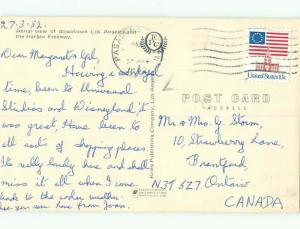 27.3.82.
Aerial view of downtown Los Angeles and
the Harbor Freeway.
Dear Margaret & Syd,
Having a wonderful
time, been to Universal
Studios and Disneyland it
was great, Have been to
all sorts of shopping places.
It's really lovely here and shall
miss it all when I come
back to the colder weather.
See you soon. Love from Joan.
PASADENA
United States 13c
POST CARD
ADDRESS
Mr & Mrs. G. Storm,
10, Strawberry Lane,
Brantford,
N3T 5Z7 Ontario.
CANADA